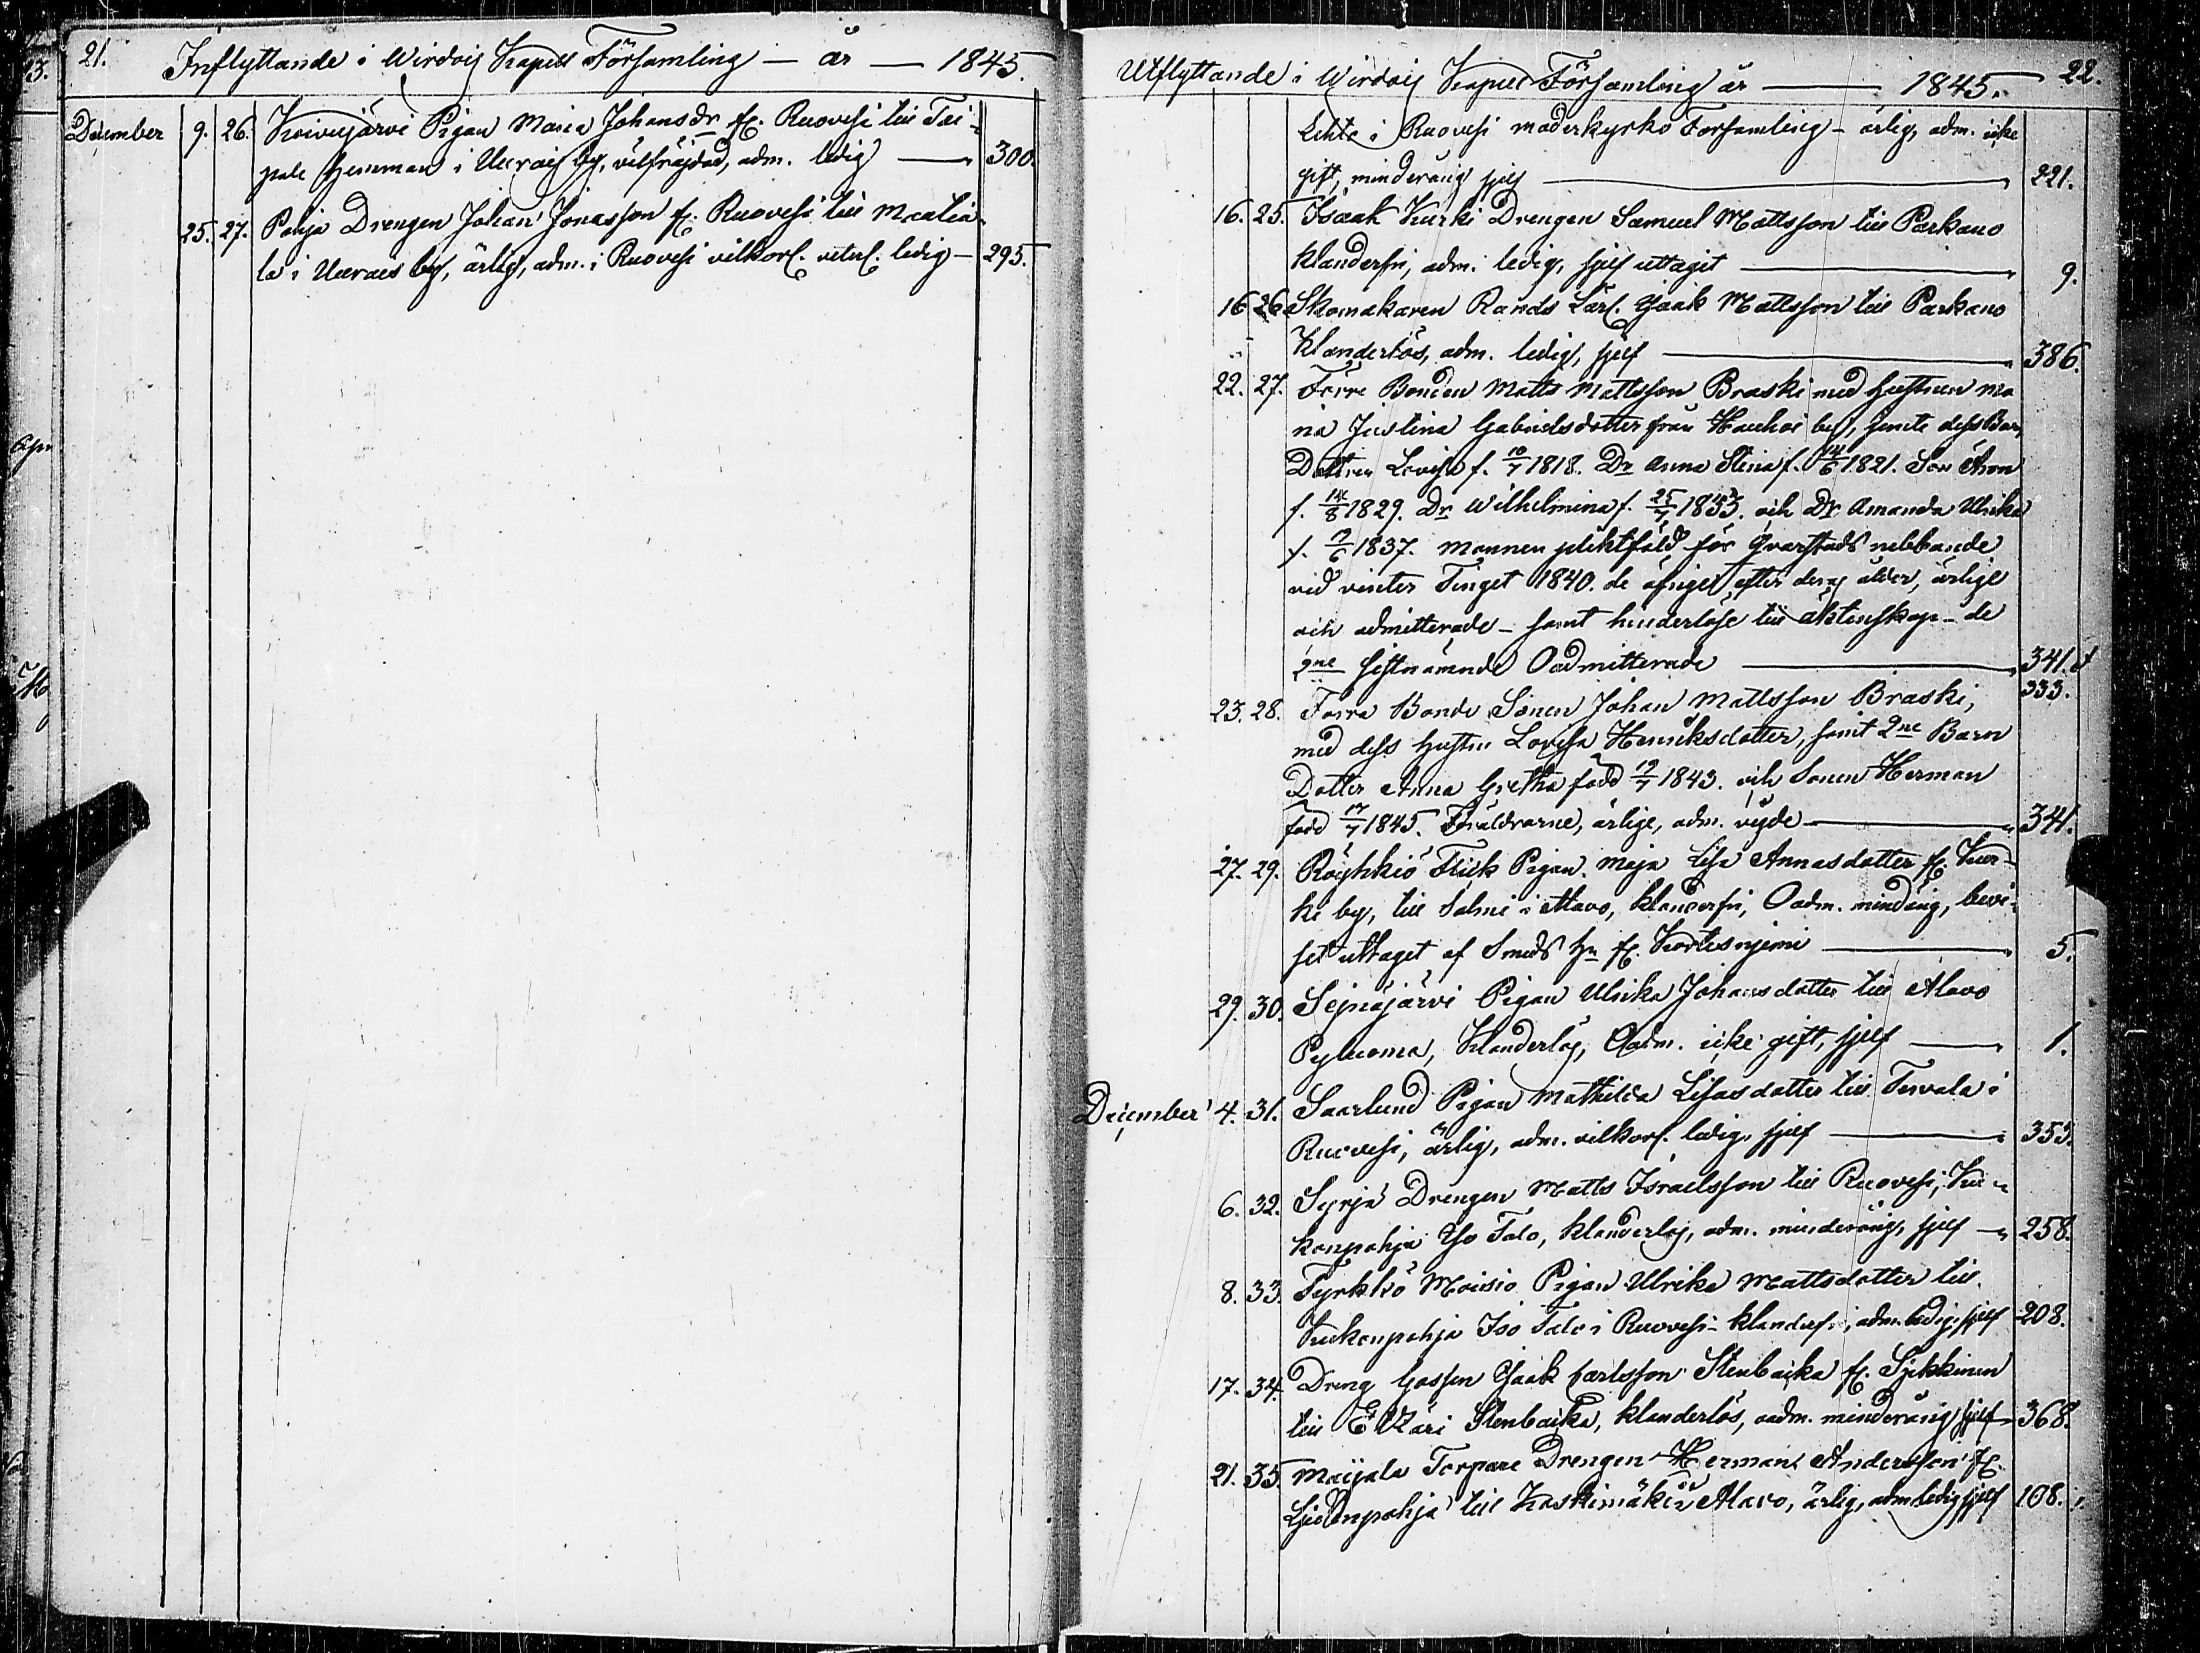 21. Inflyttande i Wirdois Kapell Församling — år — 1845.
December 9. 26. Koivujärvi Pigan Maria Johansdr fr. Ruovesi till Tai-
pale hemman i Uurais by, välfräjdad, adm. ledig — 300.
25. 27. Pohja Drengen Johan Jonasson fr. Ruovesi till Maatia-
la i Uurais by, ärlig, adm. i Ruovesi vilkorl. ledig — 295.
Utflyttande i Wirdois Kapell Församling år — 1845. 22.
Lehto i Ruovesi moderkyrko Forsamling - ärlig, adm. icke
gift, minderårig sjelf — 221.
16. 25. Isaak Kurki Drengen Samuel Mattsson till Parkano
klanderfri, adm. ledig, sjelf uttagit — 9.
16 26 Skomakaren Rands Lärl. Isaak Mattsson till Parkano
Klanderlös, adm. ledig, sjelf — 386.
22. 27. Förre Bonden Matts Mattsson Braski med hustrun Ma
ria Justina Gabrielsdotter från Hauhoi by, jemte dess Barn
Dottren Lovisa f. 10/7 1818. Dr Anna Stina f. 14/6 1821. Son Aron
f. 14/8 1829. Dr Wilhelmina f. 25/7 1833. och Dr Amanda Ulrika
f. 17/6 1837. Mannen pliktfäld för qvarstads
vid vinter Tinget 1840. de öfriga efter deras ålder, ärlige
och admitterade - samt hinderlöse till äktenskap - de
2ne sistnämnde Oadmitterade — 341. &
333.
23. 28. Forra Bonde Sonen Johan Mattsson Braski,
med dess hustru Lovisa Henriksdotter, samt 2ne Barn
Dotter Anna Gretha född 19/7 1843. och Sonen Herman
född 17/7 1845. Föräldrarne, ärlige, adm. vigde — 341.
27. 29. Röyhkiö Flick Pigan Maja Lisa Annasdotter fr. Kur-
ki by, till Salmi i Alavo, klanderfri, Oadm. mindårig, bevi-
set uttaget af Smeds Hu fr. Kortesnjemi — 5.
29. 30. Sejnäjärvi Pigan Ulrika Johansdotter till Alavo
Pyluoma, Klanderlös, Oadm. icke gift, sjelf — 1.
December 4. 31. Saarlund Pigan Mathilda Lisasdotter till Tervala i
Ruovesi, ärlig, adm. vilkorl. ledig, sjelf — 353.
6. 32. Syrjä Drengen Matts Israelsson till Ruovesi, Kuu-
konpohja Iso Talo, klanderlös, adm. minderårig, sjelf — 258.
8. 33. Tyrkkö Moisio Pigan Ulrika Mattsdotter till
Kuukonpohja Iso Talo i Ruovesi - klanderfri, adm. ledig, sjelf 208.
17. 34. Dreng Gossen Isaak Carlsson Stenbacka fr. Sjekkinen
till Etzäri Stenbacka, klanderlös, oadm. minderårig sjelf — 368.
21. 35. Maijala Torpare Drengen Herman Andersson fr.
Liedenpohja till Koskimäki i Alavo, ärlig, adm. ledig sjelf 108.